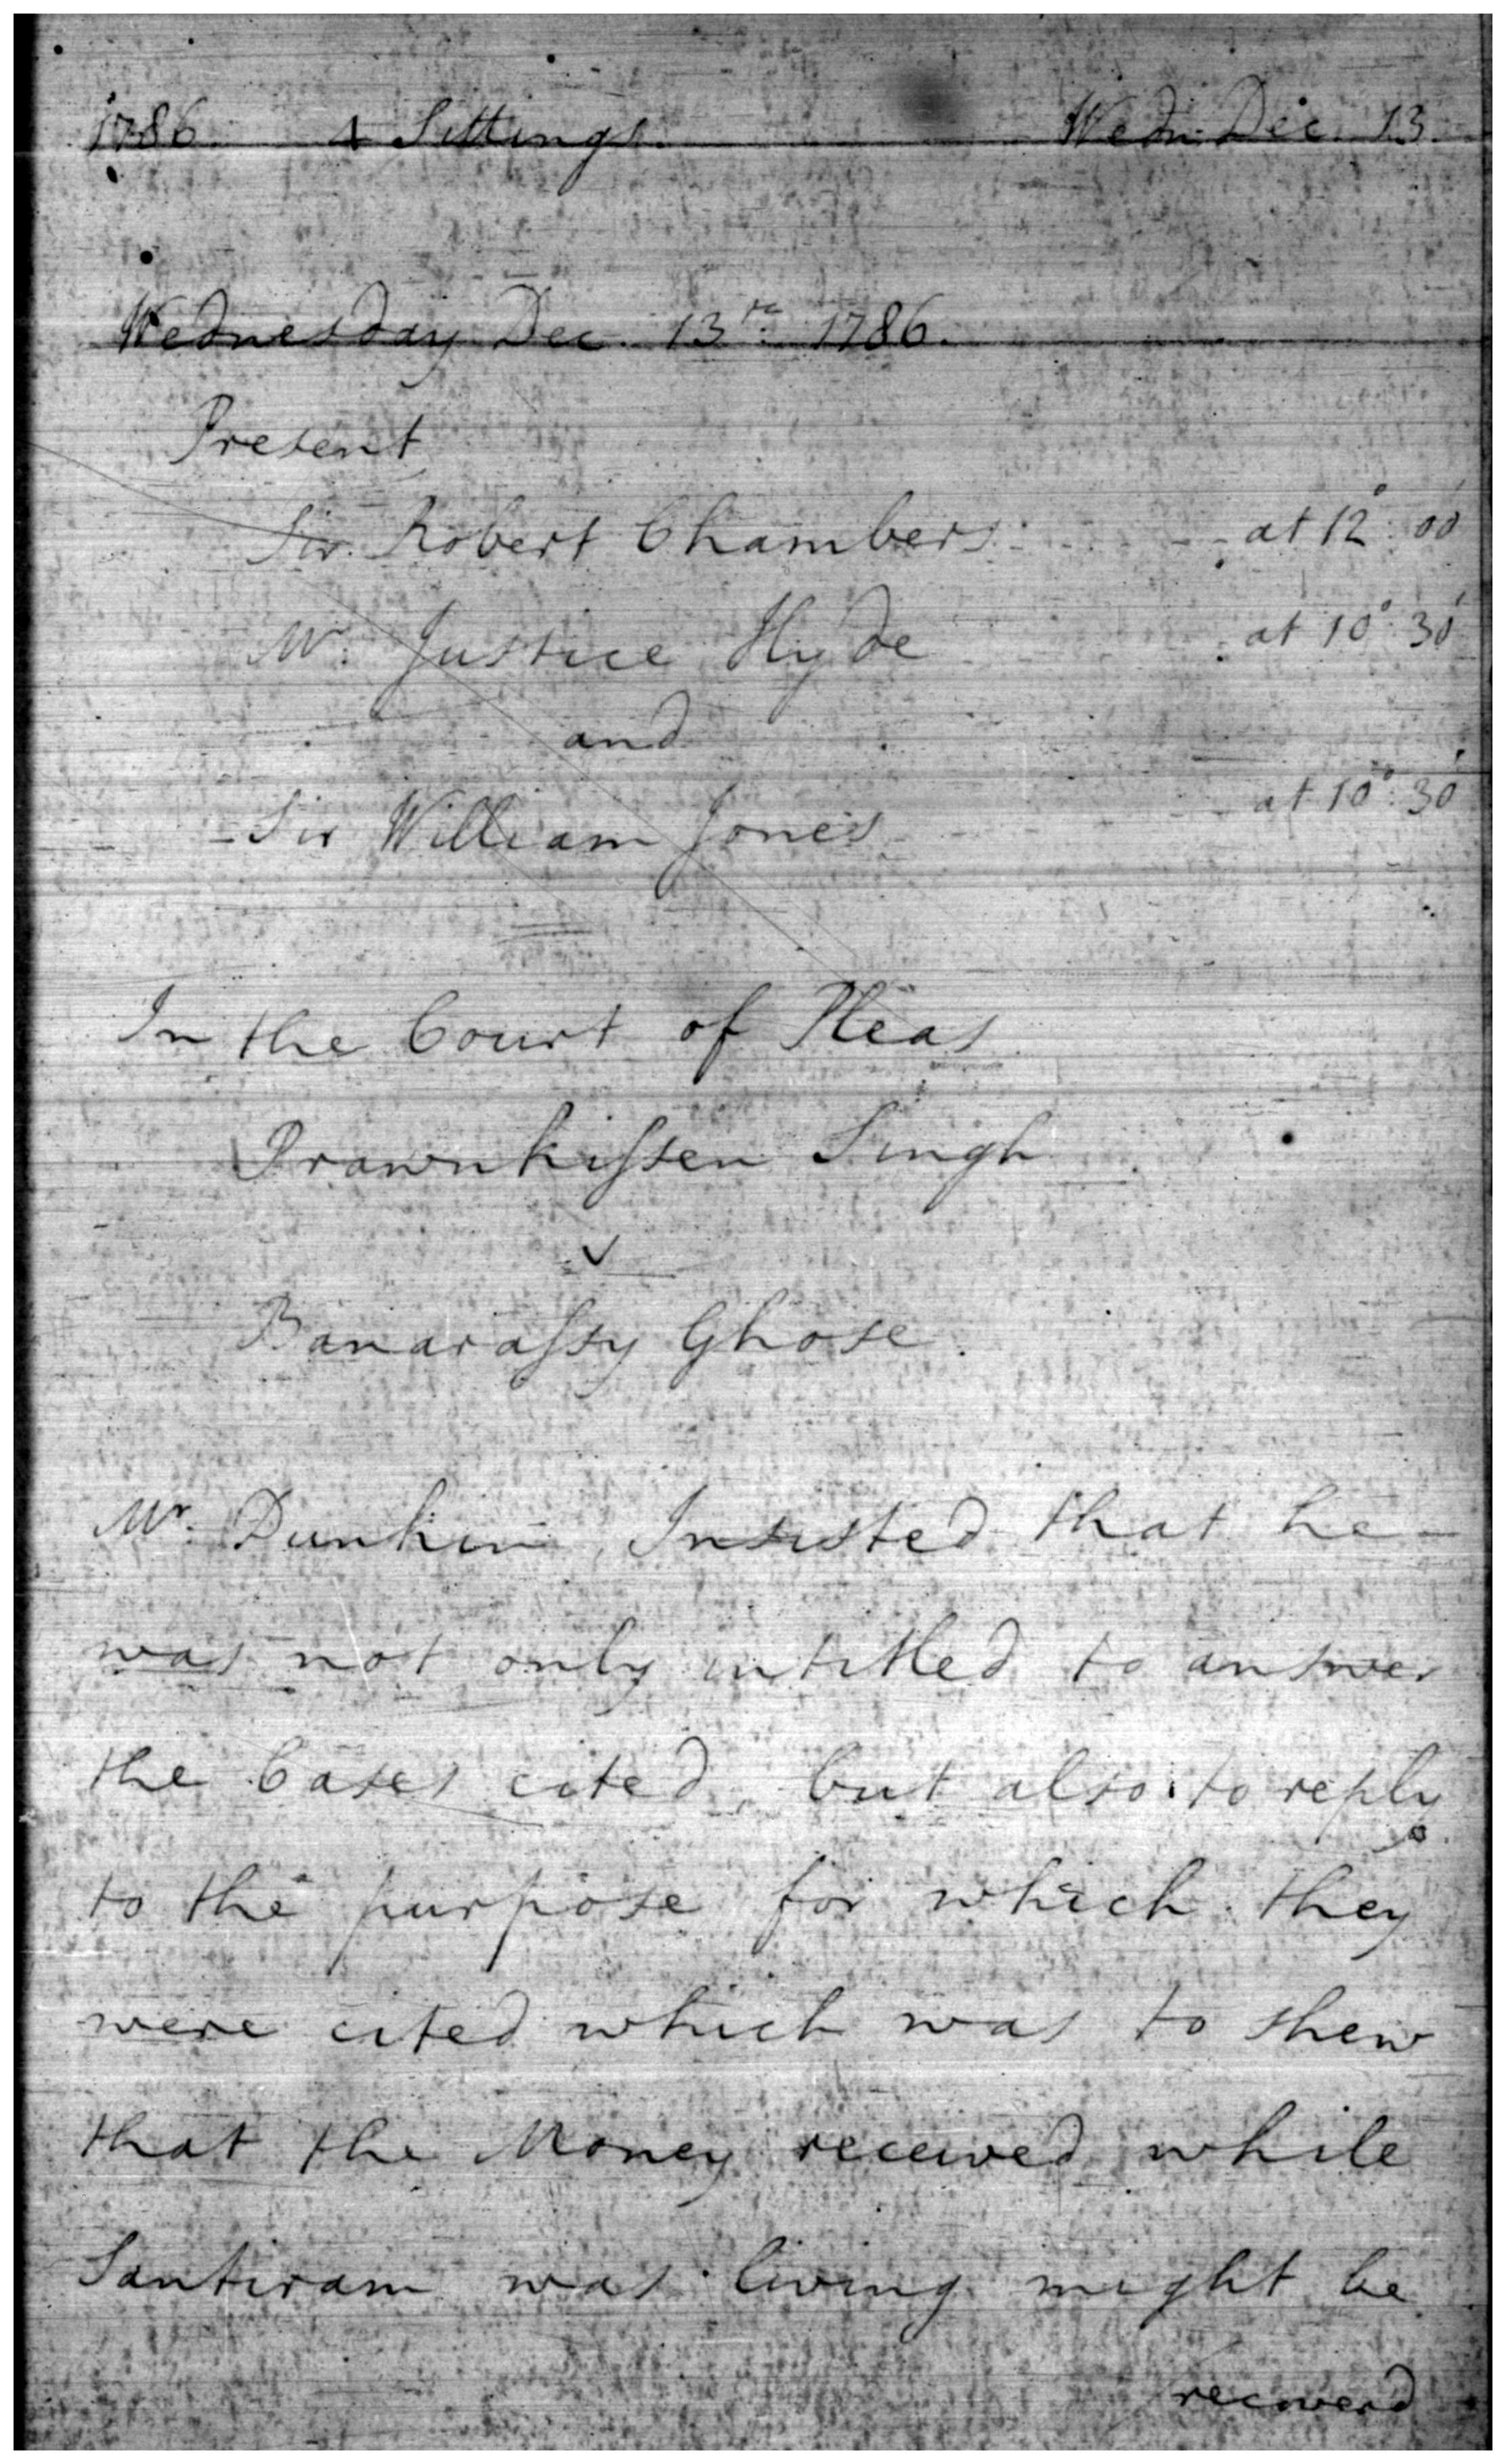 1786. 4 Sittings. Wedn. Dec. 13.
Wednesday Dec. 13th. 1786.
Present
Sir Robert Chambers at 12°. 00'
Mr. Justice Hyde at 10°. 30'
and
Sir William Jones at 10°. 30'
In the Court of Pleas
Prawnkissen Singh
v
Banarassy Ghose.
Mr. Dunkin, Insisted that he
was not only intitled to answer
the Cases cited, but also to reply
to the purpose for which they
were cited which was to shew
that the Money received while
Santiram was living might be
recoverd